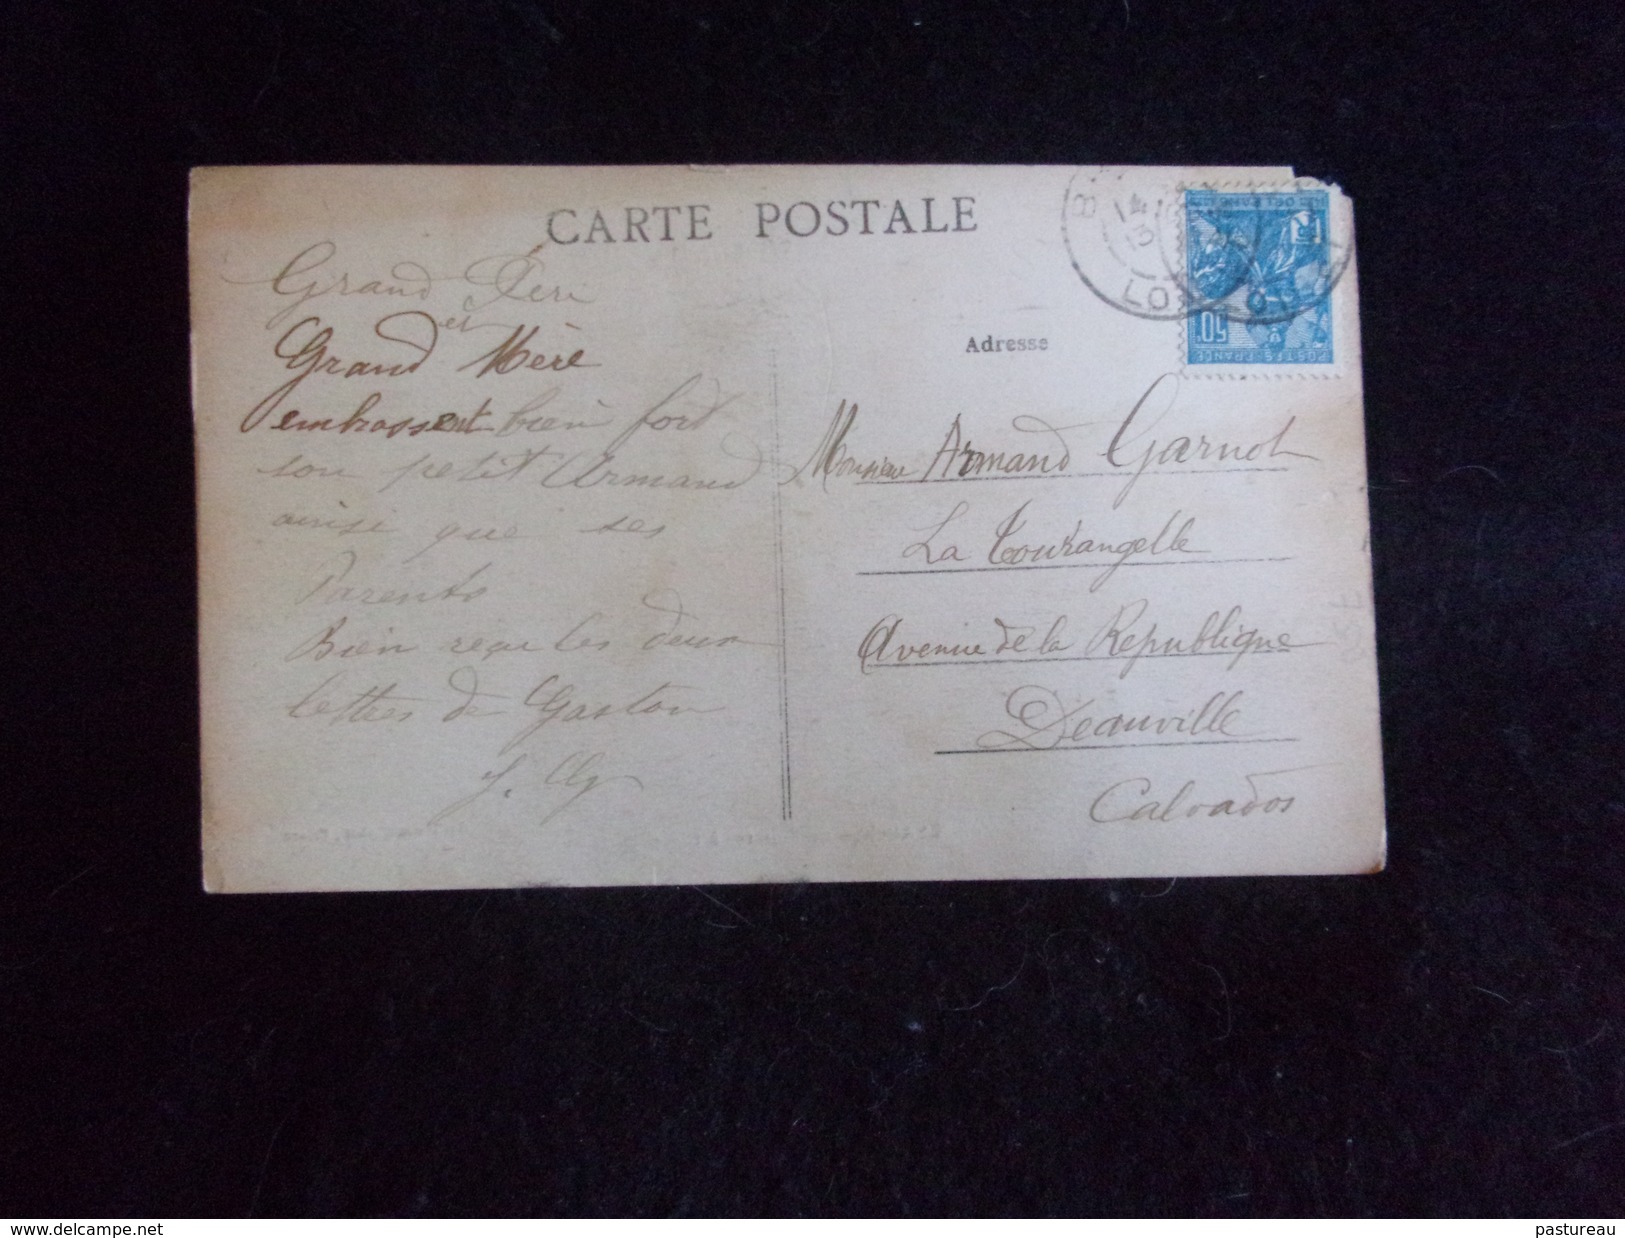 CARTE POSTALE
Grand Père
et
Grand Mère
embrassent bien fort
son petit Armand
ainsi que ses
Parents
Bien reçu les deux
lettres de Gaston
Adresse
Monsieur Armand Garnot
La Tourangelle
Avenue de la Republique
Deauville
Calvados
14
13
LO
POSTES FRANCE
50c
www.delcampe.net
pastureau